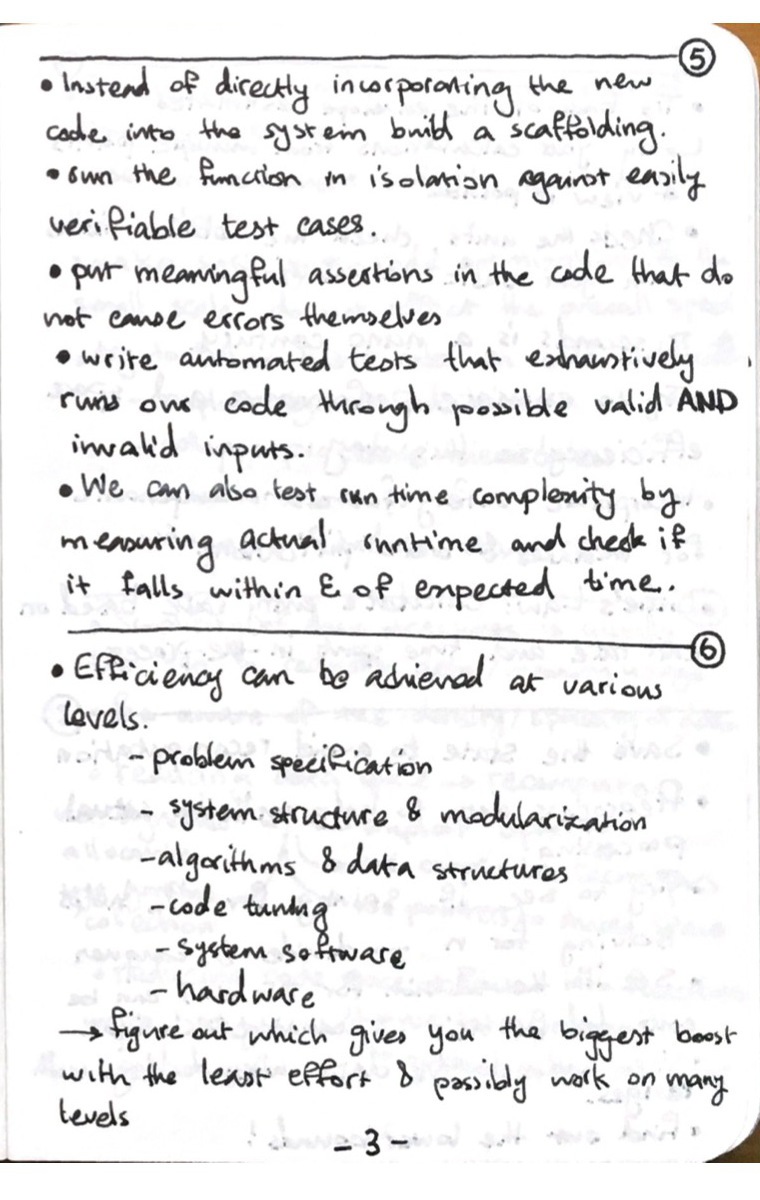 5
• Instead of directly incorporating the new
code into the system build a scaffolding.
• run the function in isolation against easily
verifiable test cases.
• put meaningful assertions in the code that do
not cause errors themselves
• write automated tests that exhaustively
runs our code through possible valid AND
invalid inputs.
• We can also test run time complexity by
measuring actual runtime and check if
it falls within ε of expected time.
6
• Efficiency can be achieved at various
levels.
- problem specification
- system structure & modularization
- algorithms & data structures
- code tuning
- system software
- hardware
→ figure out which gives you the biggest boost
with the least effort & possibly work on many
levels
- 3 -